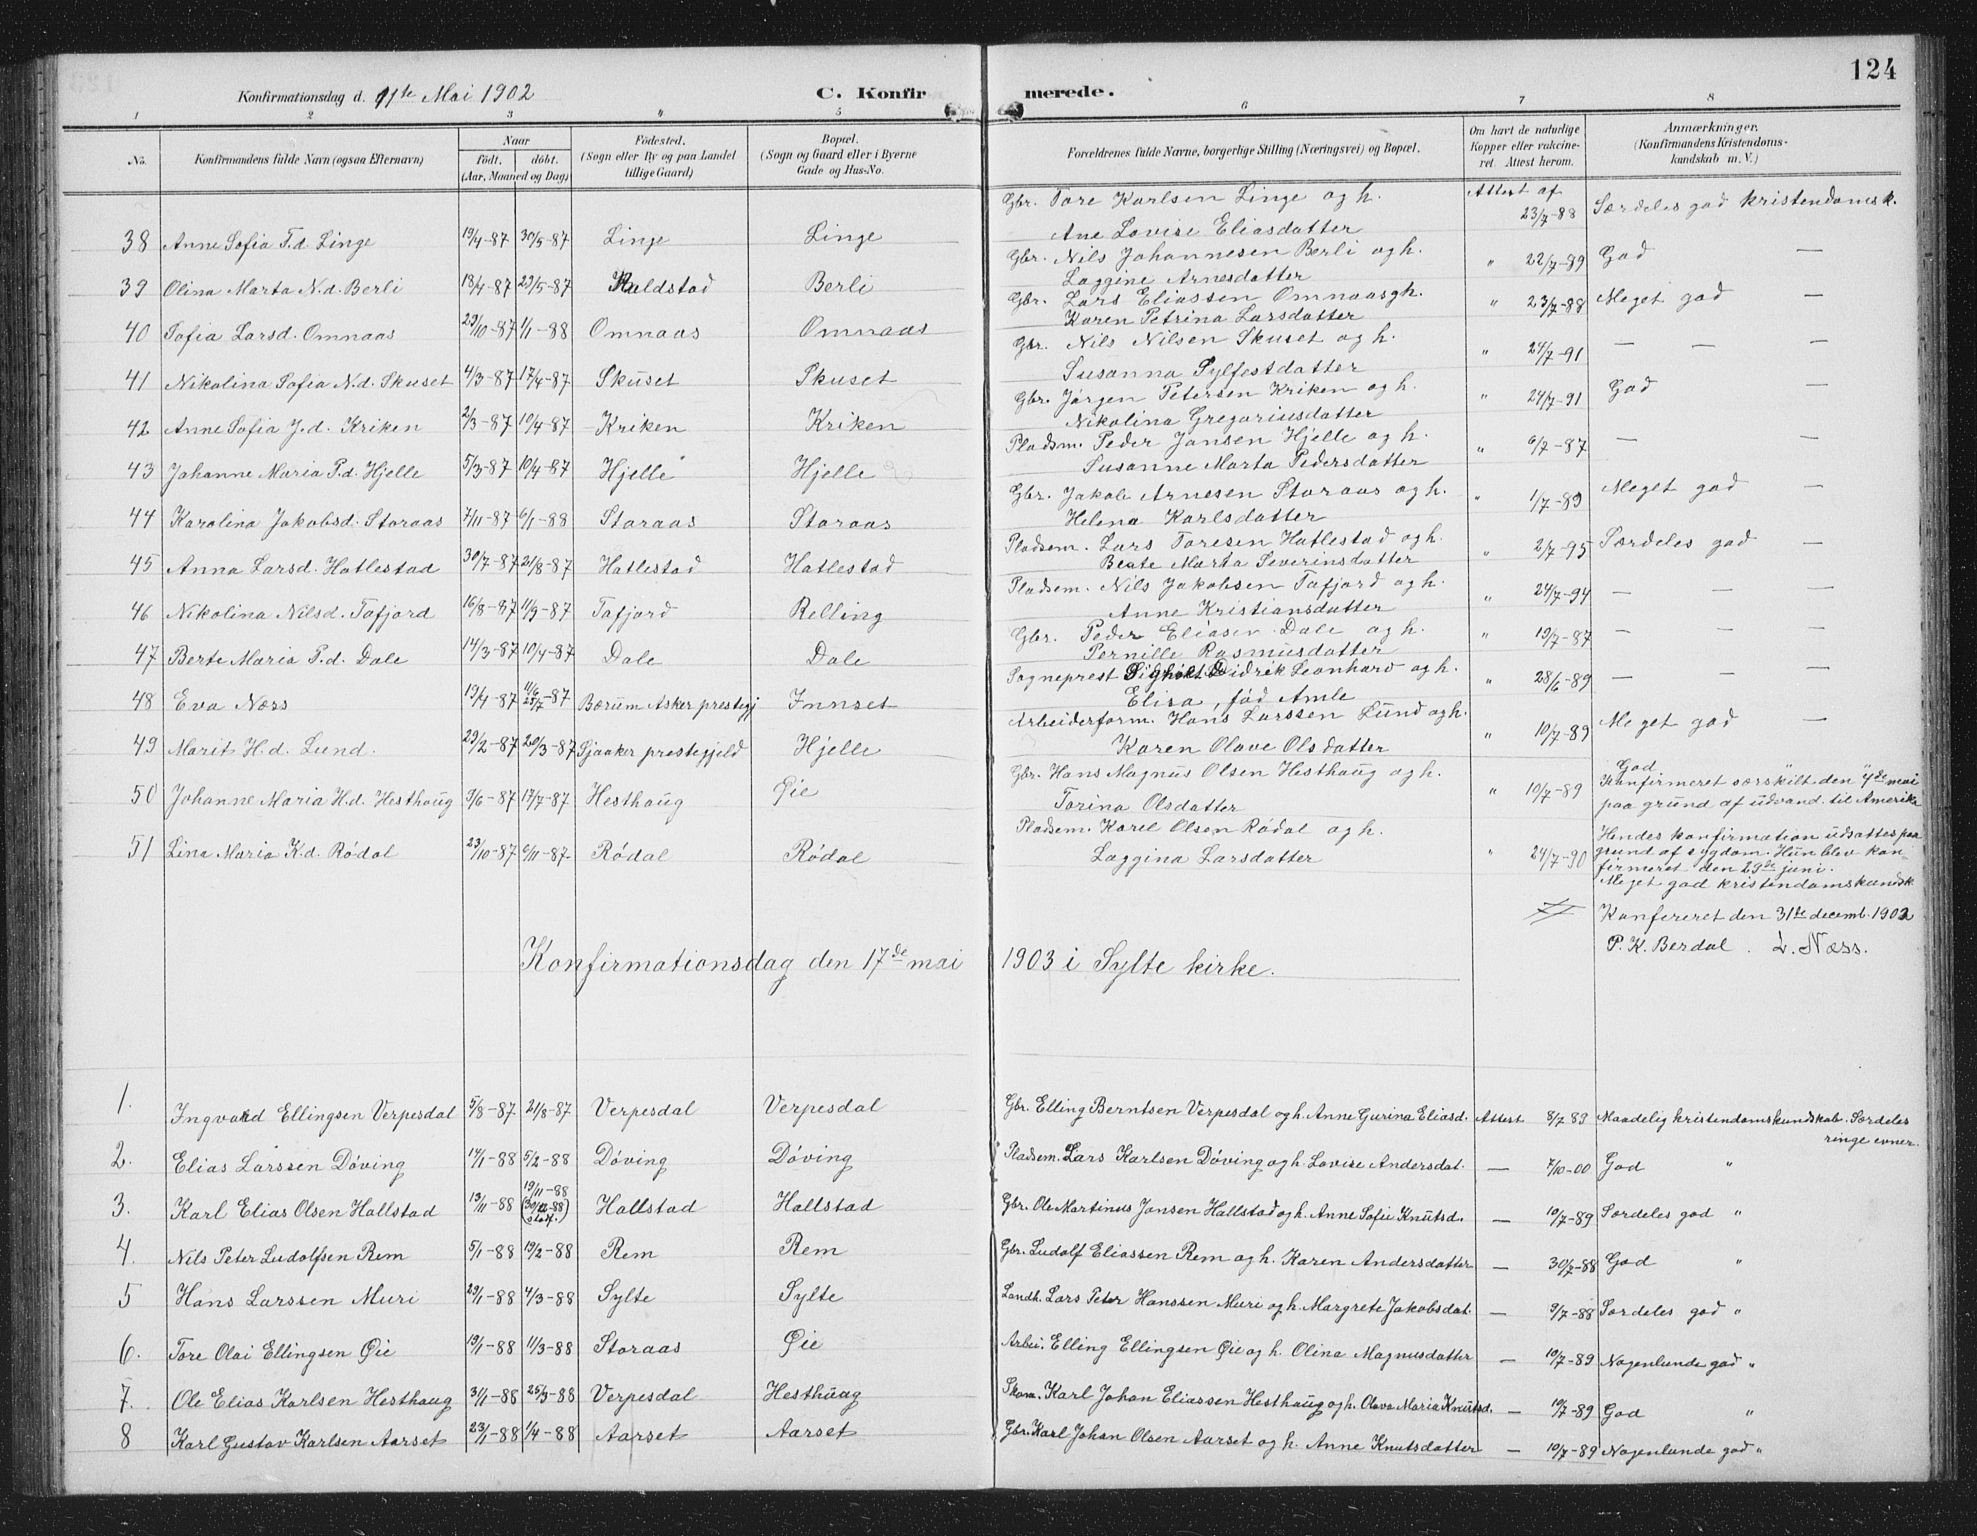 124
Konfirmationsdag d. 11te Mai 1902 C. Konfirmerede.
1 2 3 4 5 6 7 8
No. Konfirmandens fulde Navn (ogsaa Efternavn) Naar født. døbt. (Aar, Maaned og Dag) Fødested. (Sogn eller By og paa Landet tillige Gaard) Bopæl. (Sogn og Gaard eller i Byerne Gade og Hus-No. Forældrenes fulde Navne, borgerlige Stilling (Næringsvei) og Bopæl. Om havt de naturlige Kopper eller vakcineret. Attest herom. Anmærkninger. (Konfirmandens Kristendomskundskab m. V.)
38 Anne Sofia T.d. Linge 19/4-87 30/5-87 Linge Linge Gbr. Tore Karlsen Linge og h. Ane Lovise Eliasdatter Attest af 23/7-88 Særdeles god kristendomsk.
39 Olina Marta N.d. Berli 18/4-87 29/5-87 Berli Gbr. Nils Johannesen Berli og h. Laggine Arnesdatter " 22/7-89 God —
40 Sofia Larsd. Omnaas 29/10-87 1/1-88 Omnaas Omnaas Gbr. Lars Eliassen Omnaas og h. Karen Petrina Larsdatter " 23/7-88 Meget god —
41 Nikolina Sofia N.d. Skuset 4/3-87 17/4-87 Skuset Skuset Gbr. Nils Nilsen Skuset og h. Susanna Sylfestdatter " 24/7-91 — — —
42 Anne Sofia J.d. Kriken 2/3-87 10/4-87 Kriken Kriken Gbr. Jørgen Petersen Kriken og h. Nikolina Gregoriusdatter " 24/7-91 God —
43 Johanne Maria P.d. Hjelle 5/3-87 10/4-87 Hjelle Hjelle Pladsm. Peder Jansen Hjelle og h. Susanne Marta Pedersdatter " 6/7-87 — —
44 Karolina Jakobsd. Storaas 7/11-87 6/1-88 Storaas Storaas Gbr. Jakob Arnesen Storaas og h. Helena Karlsdatter " 1/7-89 Meget god —
45 Anna Larsd. Hatlestad 30/7-87 21/8-87 Hatlestad Hatlestad Pladsem. Lars Toresen Hatlestad og h. Beate Marta Severinsdatter " 2/7-95 Særdeles god —
46 Nikolina Nilsd. Tafjord 16/8-87 11/9-87 Tafjord Relling Pladsem. Nils Jakobsen Tafjord og h. Anne Kristiansdatter " 24/7-94 — —
47 Berte Maria P.d. Dale 14/3-87 10/4-87 Dale Dale Gbr. Peder Eliasen Dale og h. Pernille Rasmusdatter " 19/7-87 — —
48 Eva Næss 19/4-87 Bærum Asker prestegj Innset Sogneprest Didrik Leonhard og h. Elisa, fød Amle " 28/6-89 — —
49 Marit H.d. Lund. 23/2-87 20/3-87 Sjaaker prestegjeld Hjelle Arbeiderform. Hans Larssen Lund og h. Karen Olave Olsdatter " 10/7-89 Meget god —
50 Johanne Maria H.d. Hesthaug 9/6-87 17/7-87 Hesthaug Øie Gbr. Hans Magnus Olsen Hesthaug og h. Torina Olsdatter " 10/7-89 God
Konfirmeret særskilt den 4de mai
paa grund af udvand. til Amerika
51 Lina Maria K.d. Rødal 23/10-87 6/11-87. Rødal Rødal Pladsem. Karel Olsen Rødal og h. Laggina Larsdatter " 24/7-90 Hendes konfirmation udsattes paa
grund af sygdom. Hun blev kon-
firmeret den 29de juni.
Meget god kristendomskundsk.
Konfereret den 31te decemb. 1902
P. K. Berdal. L. Næss.
Konfirmationsdag den 17de mai 1903 i Sylte kirke.
1. Ingvald Ellingsen Verpesdal 5/8-87. 21/8-87 Verpesdal Verpesdal Gbr. Elling Berntsen Verpesdal og h. Anne Gurina Eliasd. Attest 8/7 89 Maadelig kristendomskundskab. Særdeles
ringe evner.
2. Elias Larssen Døving 14/1-88 5/2-88 Døving Døving Pladsem. Lars Karlsen Døving og h. Lovise Andersdat. — 7/10-00 God "
3. Karl Elias Olsen Hallstad 13/11-88 19/11-88 Hallstad Hallstad Gbr. Ole Martinus Jansen Hallstad og h. Anne Sofie Knutsd. — 10/7-89 Særdeles god "
4. Nils Peter Ludolfsen Rem 5/1-88 19/2-88 Rem Rem Gbr. Ludolf Eliassen Rem og h. Karen Andersdatter — 30/7-88 God "
5 Hans Larssen Muri 29/1-88 4/3-88 Sylte Sylte Landh. Lars Peter Hanssen Muri og h. Margrete Jakobsdat. — 9/7-88 Særdeles god "
6. Tore Olai Ellingsen Øie 19/1-88 11/3-88 Storaas Øie Arbei. Elling Ellingsen Øie og h. Olina Magnusdatter — 10/7-89 Nogenlunde god "
7. Ole Elias Karlsen Hesthaug 31/1-88 25/3-88 Verpesdal Hesthaug Skom. Karl Johan Eliassen Hesthaug og h. Olava Maria Knutsd. — 10/7-89 God "
8 Karl Gustav Karlsen Aarset 23/1-88 1/4-88 Aarset Aarset Gbr. Karl Johan Olsen Aarset og h. Anne Knutsdatter — 10/7-89 Nogenlunde god "